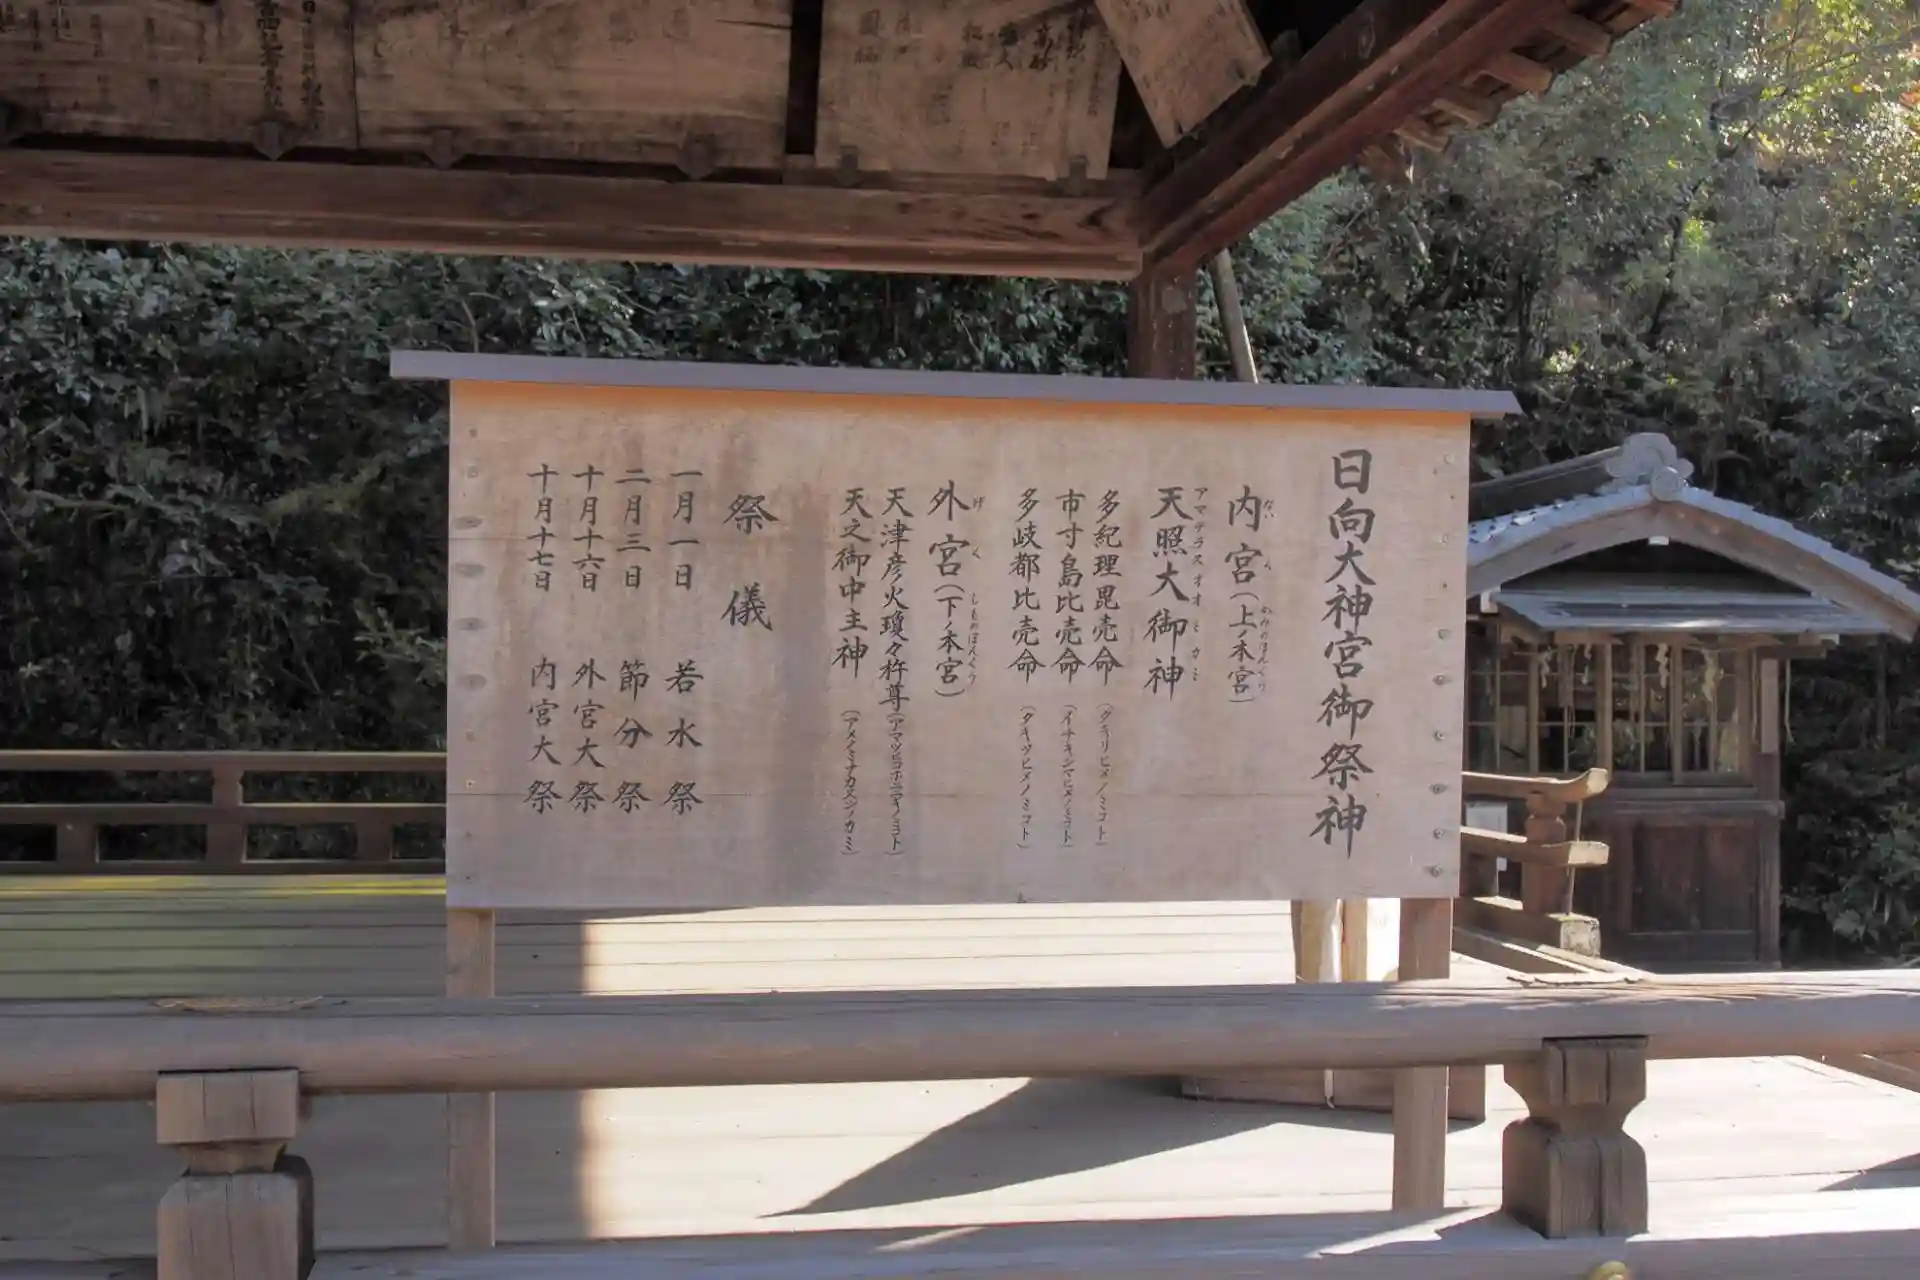 日向大神宮御祭神
内宮(上ノ本宮)
ないくう かみのほんぐう
天照大御神
アマテラスオオミカミ
多紀理毘売命(タキリヒメノミコト)
市寸島比売命(イチキシマヒメノミコト)
多岐都比売命(タキツヒメノミコト)
外宮(下ノ本宮)
げくう しものほんぐう
天津彦火瓊々杵尊(アマツヒコホニニギノミコト)
天之御中主神(アメノミナカヌシノカミ)
祭儀
一月一日 若水祭
二月三日 節分祭
十月十六日 外宮大祭
十月十七日 内宮大祭